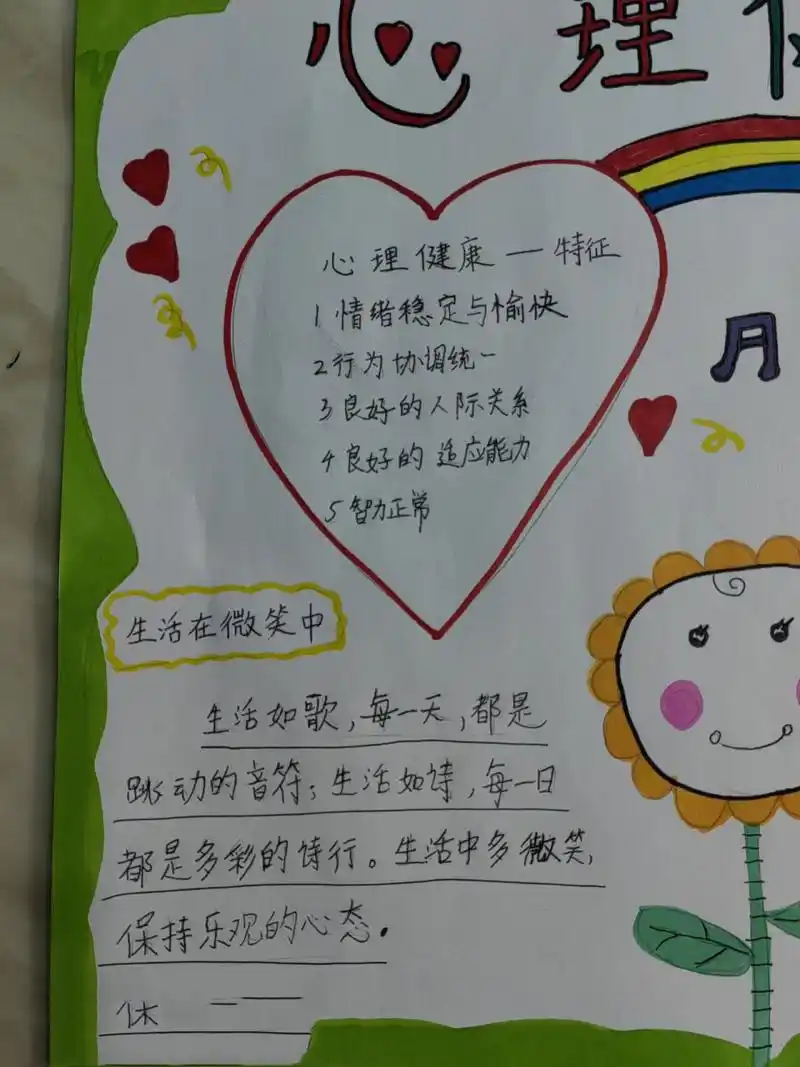 心理
心理健康一特征
1 情绪稳定与愉快
2 行为协调统一
3 良好的人际关系
4 良好的适应能力
5 智力正常
生活在微笑中
生活如歌,每一天,都是
跳动的音符;生活如诗,每一日
都是多彩的诗行。生活中多微笑,
保持乐观的心态.
休